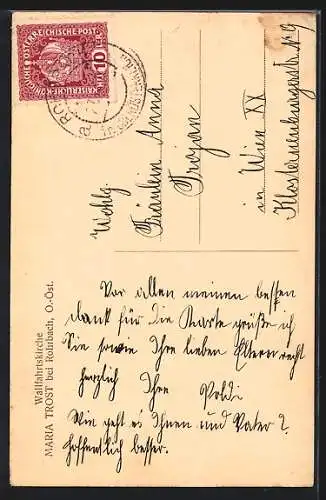 KAISERLICHE KÖNIGLICHE ÖSTERREICHISCHE POST
10
ROHRBACH
Wohlg.
Fräulein Anna
Trojan
in Wien XX
Klosterneuburgerstr. 9
Wallfahrtskirche
MARIA TROST bei Rohrbach, O.-Öst.
Vor allen meinen besten
dank für die Karte grüße ich
Sie sowie Ihre lieben Eltern recht
herzlich Ihre Poldi
Wie geht es Ihnen und Vater?
hoffentlich besser.